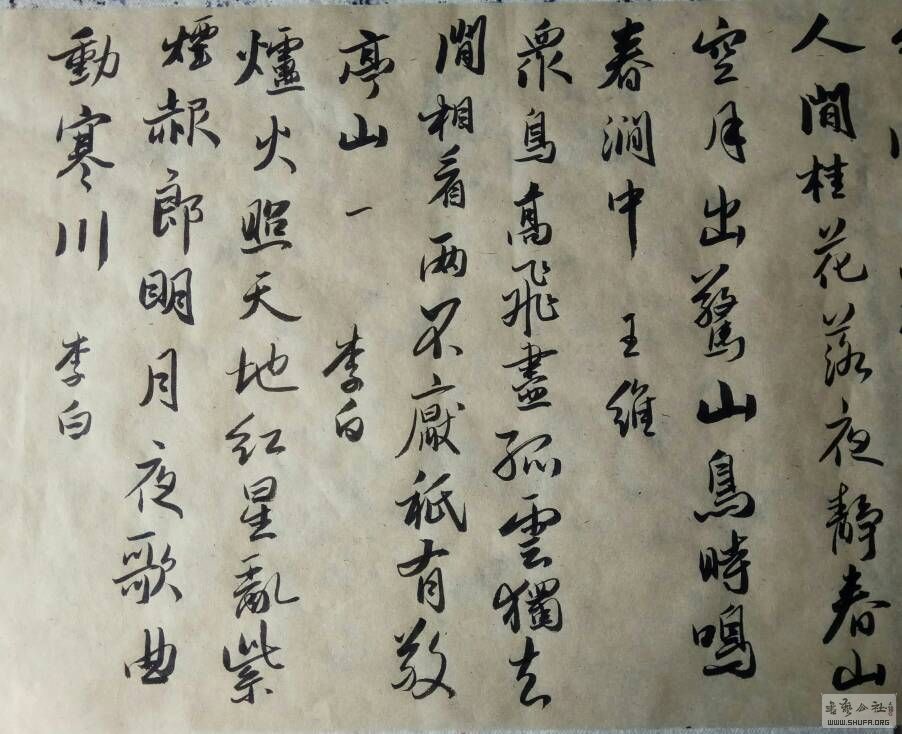 人閒桂花落夜靜春山
空月出驚山鳥時鳴
春澗中 王維
眾鳥高飛盡孤雲獨去
閒相看兩不厭祇有敬
亭山一 李白
爐火照天地紅星亂紫
煙赧郎明月夜歌曲
動寒川 李白
WWW.SHUFA.ORG